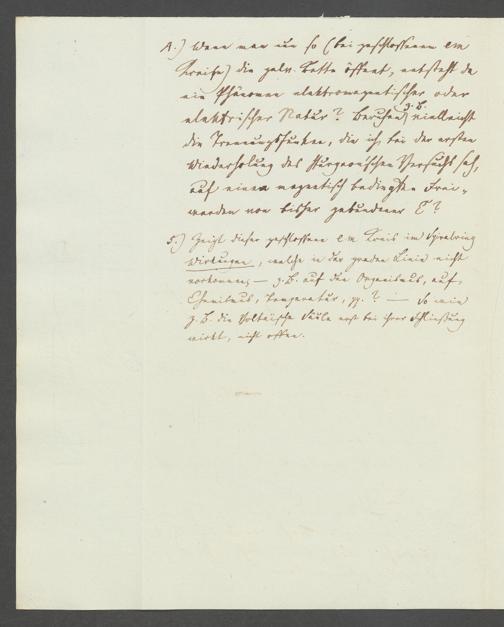 4.) Wenn man nun so (bei geschlossenem em
Kreise) die galv. Kette öffnet, entsteht da
ein Phänomen elektromagnetischer oder
elektrischer Natur? Beruhen z. B. vielleicht
die Trennungsfunken, die ich bei der ersten
Wiederholung des Versuchs sah,
auf einem magnetisch bedingten Frei-
werden von bisher gebundener E?
5.) Zeigt dieser geschlossene em Kreis im Spiralring
Wirkungen, welche in der graden Linie nicht
vorkommen, — z. B. auf den Organismus, auf
Chemismus, Temperatur, pp.? — So wie
z. B. die Voltaische Säule erst bei ihrer Schließung
wirkt, nicht offen.